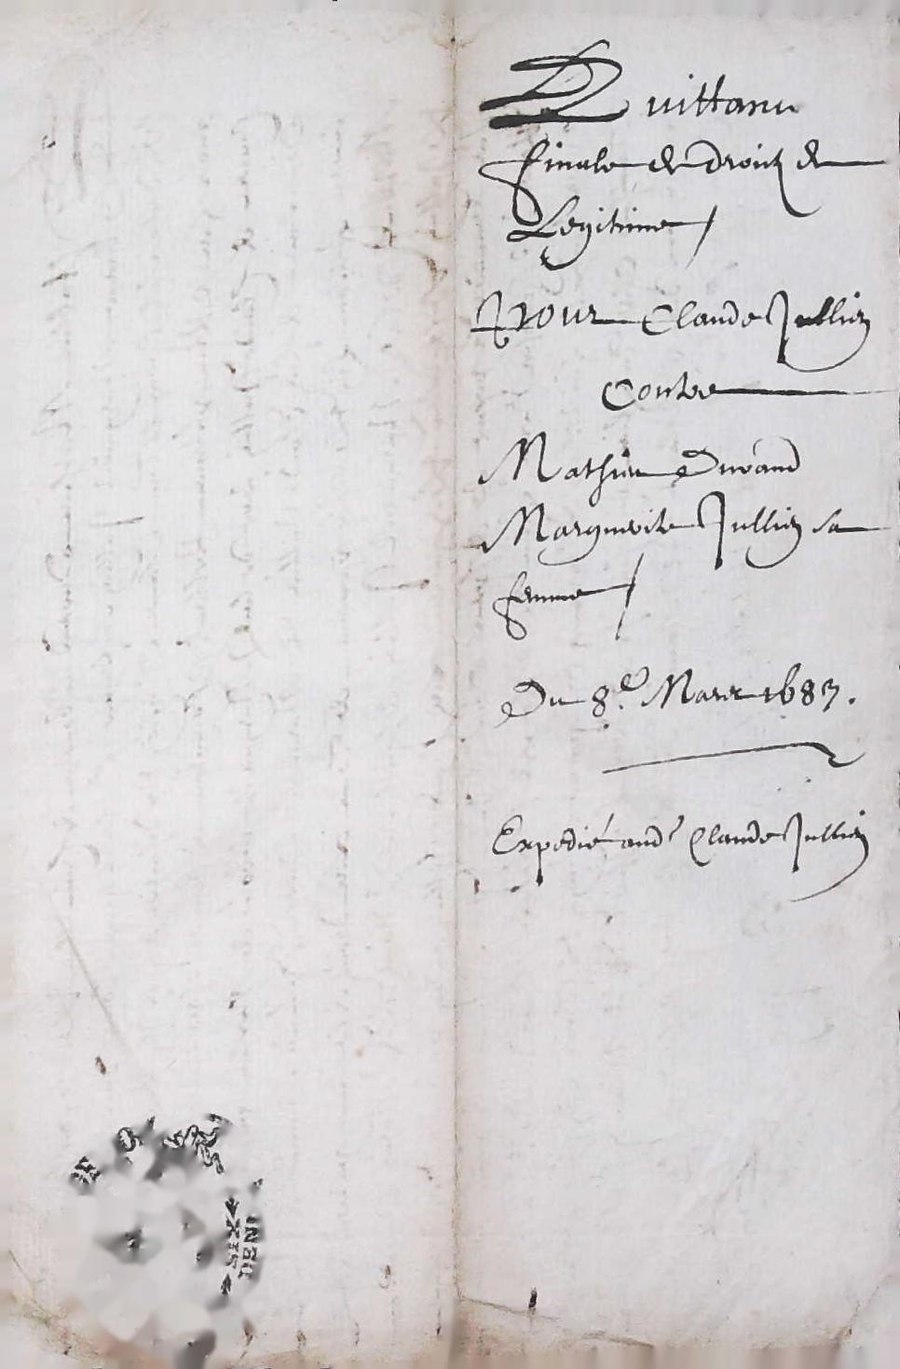 Quittance
finale de droitz de
Legitime /
Pour Claude Jullien
Contre
Mathieu Durand
Marguerite Jullien sa
femme /
Du 8.e Mars 1687.
Expedié aud.t Claude Jullien
SIX
DENI